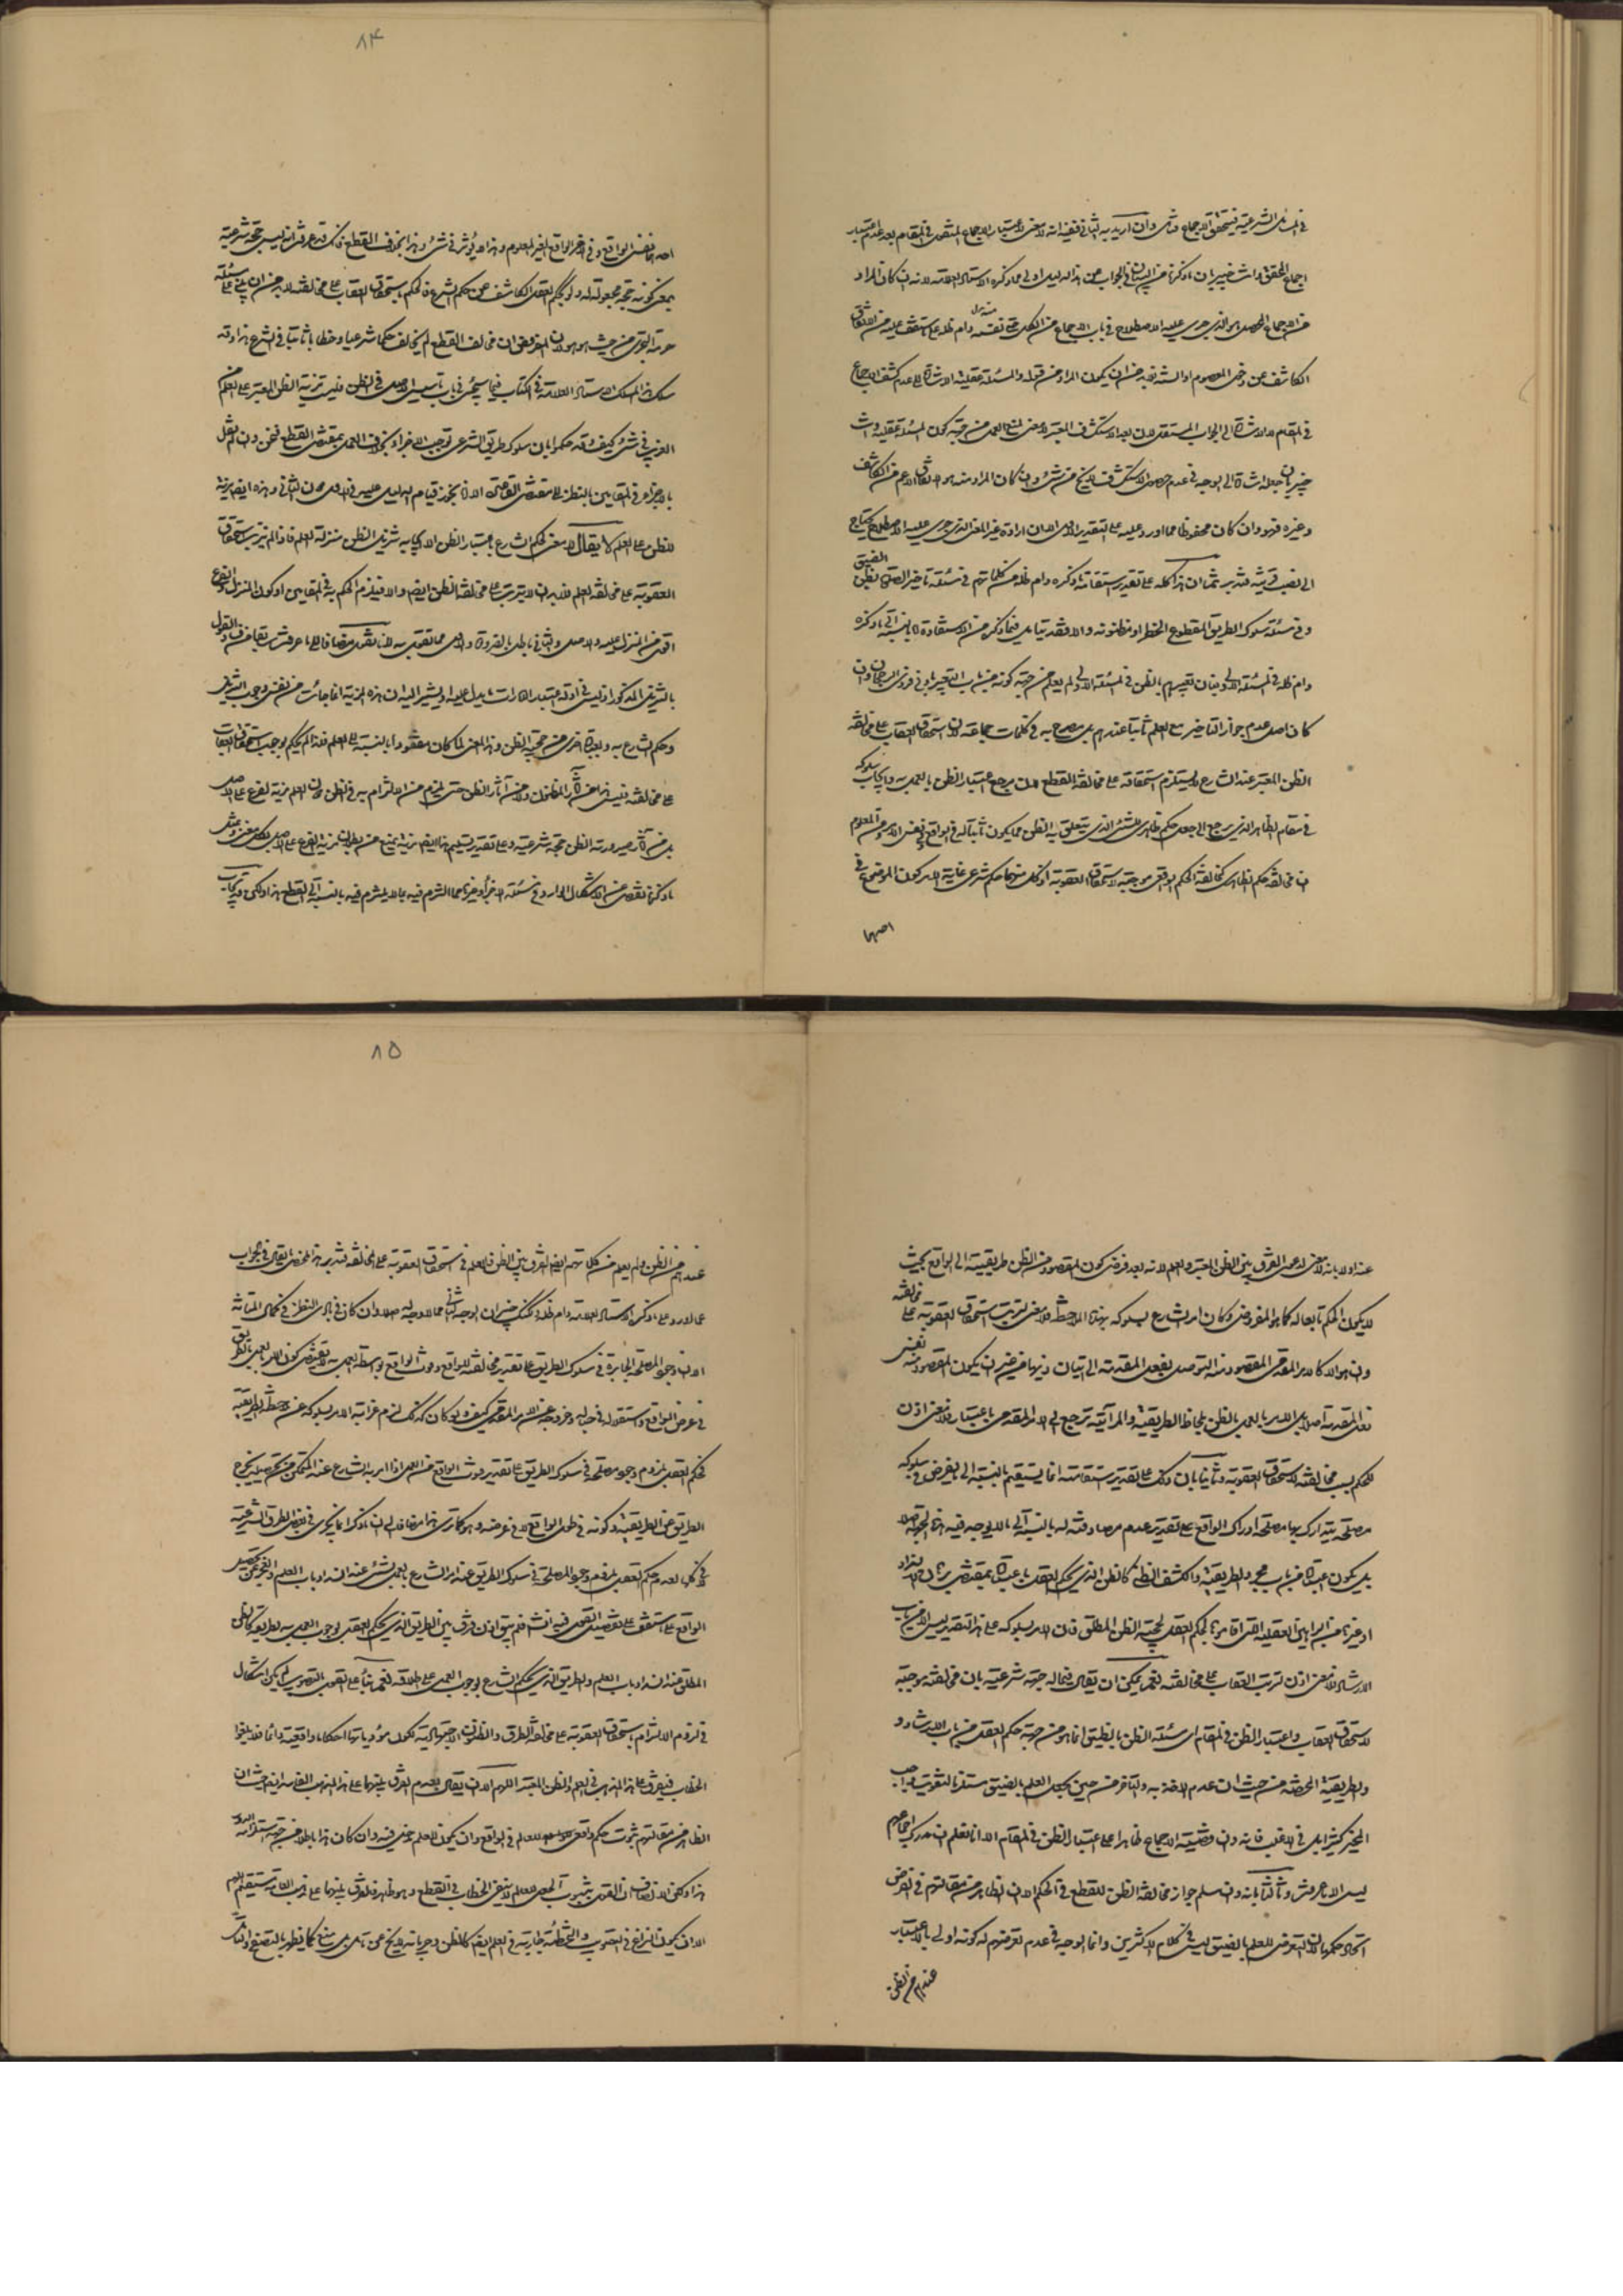 ۸۴
في المسائل الشرعية فيتحقق الاجماع فتأمل وان اريد به الثاني ففيه انه لا معنى لاعتبار الاجماع المنقول في المقام بعد عدم اعتبار
اجماع المحقق وانت خبير بان ما ذكرنا من البيان في الجواب عن هذا الدليل اولى مما ذكره الاستاد العلامة لانه ان كان المراد
من الاجماع المحصل هو الذي جرى عليه الاصطلاح في باب الاجماع من الكل دام ظله على ما ستقف عليه من الاتفاق
الكاشف عن دخول المعصوم او السنة فلا بد من ان يكون المراد من قوله والمسئلة عقلية الاشارة الى عدم كشف الاجماع
في المقام لا الاشارة الى الجواب المستقل لان بعد الاستكشاف المعتبر لا معنى لمنع العمل من جهة كون المسئلة عقلية وانت
خبير بان جعله اشارة الى الوجه في عدم حصول الاستكشاف لا يخلو عن شيء وان كان المراد منه هو الاتفاق الاعم من الكاشف
وغيره فهو وان كان محفوظا مما اورد عليه على التقدير الاول الا ان ارادة غير المعنى الذي جرى عليه الاصطلاح يحتاج
الى نصب قرينة فتدبر ثم ان هذا كله على تقدير استقامة ما ذكره دام ظله من كلماتهم في مسئلة تأخير الصلوة بظن الضيق
وفي مسئلة سلوك الطريق المقطوع الخطر او مظنونه والا فقد يتأمل فيما ذكره من الاستفادة اما بالنسبة الى ما ذكره
دام ظله في المسئلة الاولى فبان تعبيرهم بالظن في المسئلة الاولى لم يعلم من جهة كونه من باب التعبير بادنى فردي الرجحان وان
كان اصل عدم جواز التأخير مع العلم ثابتا عندهم بل مصرح به في كلمات جماعة لان استحقاق العقاب على مخالفة
الظن المعتبر عند الشارع لا يستلزم استحقاقه على مخالفة القطع لان مرجع اعتبار الظن بالعمل به وايجاب سلوكه
في مقام الظاهر الذي يرجع الى جعل حكم ظاهري للشيء الذي يتعلق به الظن مما يكون ثابتا له في الواقع ونفس الامر ومن المعلوم
ان مخالفة حكم الظاهر كمخالفة الحكم الواقعي موجبة لاستحقاق العقوبة اذ كل منهما حكم شرعي غاية الامر كون الموضوع في
احدهما
احدهما نفس الواقع وفي الاخر الواقع الغير المعلوم وهذا لا يؤثر في شيء وهذا بخلاف القطع فانك قد عرفت انه ليس حجة شرعية
بمعنى كونه حجة مجعولة له ولو بحكم العقل الكاشف عن حكم الشرع فالحكم باستحقاق العقاب على مخالفته لا بد من ان يبتنى على مسئلة
حرمة التجري من حيث هو هو لان المفروض ان مخالف القطع لم يخالف حكما شرعيا وخطابا ثابتا في الشرع هذا وقد
سلك هذا المسلك الاستاد العلامة في الكتاب فيما سيجيء في باب تأسيس الاصل في الظن فليت مزية الظن المعتبر على العلم من
الغريب في شيء كيف وقد حكموا بان سلوك طريق الشرعي يوجب الاجزاء بخلاف العمل بمقتضى القطع فنحن وان لم نقل
بالاجزاء في المقامين بالنظر الى مقتضى القاعدة الا انا نجوز قيام الدليل عليه في الاول دون الثاني وهذه ايضا مزية
للظن على العلم لا يقال لا معنى لحكم الشارع باعتبار الظن الا ايجابه تنزيل الظن منزلة العلم فاذا لم يترتب استحقاق
العقوبة على مخالفة العلم فلا بد ان لا يترتب على مخالفة الظن ايضا والا فيلزم الحكم به في المقامين او كون المنزل والفرع
اقوى من المنزل عليه والاصل والثاني باطل بالضرورة والاول مما تقولون به لانا نقول مضافا الى ما عرفت سابقا من فساد القول
بالتنزيل المذكور اذ ليس في ادلة اعتبار الامارات ما يدل عليه او يشير اليه ان هذه المزية انما جائت من نفس وجوب التنزيل
وحكم الشارع به وبعبارة اخرى من حجية الظن وهذا المعنى لما كان مفقودا بالنسبة الى العلم فلذا لم يحكم بوجوب استحقاق العقاب
على مخالفته فليس هذا من آثار المظنون ولا من آثار الظن حتى يلزم من الالتزام به في الظن دون العلم مزية الفرع على الاصل
بل من آثار صيرورته الظن حجة شرعية وعلى تقدير تسليم هذا ايضا مزية يمنع من بطلان مزية الفرع على الاصل بكل معنى وبمثل
ما ذكرنا نتفصى عن الاشكال الوارد في مسئلة الاجزاء وغيرها مما التزم فيه بما لا يلتزم فيه بالنسبة الى القطع هذا ولكن قد يجاب
۸۵
عنه اولا بانه لا معنى لدعوى الفرق بين الظن المعتبر والعلم لانه بعد فرض كون المقصود من الظن طريقيته الى الواقع بحيث
لا يكون الحكم تابعا له كما هو المفروض وكان امر الشارع بسلوكه بهذه الملاحظة فلا معنى لترتب استحقاق العقوبة على مخالفته
وان هو الا كالامر المقدمي المقصود منه التوصل بفعل المقدمة الى اتيان ذيها من غير ان يكون المقصود منه نفس
فعل المقدمة اصلا بل الامر بالعمل بالظن بلحاظ الطريقية والمرآتية ترجع الى الامر المقدمي باعتبار فلا معنى اذن
للحكم بسبب مخالفته لاستحقاق العقوبة وثانيا بان ذلك على تقدير استقامته انما يستقيم بالنسبة الى ما يفرض في سلوكه
مصلحة يتدارك بها مصلحة ادراك الواقع على تقدير عدم مصادفته له بالنسبة الى ما لا يوجد فيه هذه الجهة اصلا
بل يكون اعتباره من باب مجرد الطريقية والكشف الظني كالظن الذي يحكم العقل باعتباره بمقتضى برهان الانسداد
او غيرها من البراهين العقلية التي اقاموها لحكم العقل بحجية الظن المطلق فان الامر بسلوكه على هذا التقدير ليس الا من باب
الارشاد فلا معنى اذن لترتب العقاب على مخالفته نعم يمكن ان يقال فيما له جهة شرعية بان مخالفته موجبة
لاستحقاق العقاب واعتبار الظن في المقام اي مسئلة الظن بالضيق انما هو من جهة حكم العقل من باب الارشاد و
والطريقية المحضة من حيث ان عدم الاخذ به والتأخر من حين يجعل العلم بالضيق مستلزم لتفويت الواجب
المخبر كثيرا بل في الاغلب فانه وان وقفية الاجماع ظاهرا على اعتبار الظن في المقام الا انا نعلم ان مدرك اجماعهم
ليس الا ما عرفت وثالثا بانه وان سلم جواز مخالفة الظن للقطع في الحكم الا ان الظاهر من مقالتهم في الفرض
اتحاد حكمهما لان التعرض للعلم بالضيق ليس في كلام الاكثرين وانما الوجه في عدم تعرضهم له كونه اولى بالاعتبار
عندهم من الظن
عندهم من الظن ولم يعلم من كلماتهم ايضا الفرق بين الظن والعلم في استحقاق العقوبة على المخالفة فتدبر هذا ملخص ما يقال في الجواب
عما اورد على ما ذكره الاستاد العلامة دام ظله ولكنك خبير بان الوجه الثاني مما لا وجه له اصلا وان كان في بادي النظر في كمال المتانة
اذ ان وجود المصلحة الجابرة في سلوك الطريق على تقدير مخالفته للواقع وفوت الواقع بواسطة العمل به لا يقتضي كون الامر بالعمل بالطريق
في عرض الواقع واستقلاله في حياله وخروجه عن الامر المقدمي كيف ولو كان كذلك لزم غرابة الامر بسلوكه عن ملاحظة الطريقية
فحكم العقل بلزوم وجود مصلحة في سلوك الطريق على تقدير فوت الواقع من العمل اذا امر به الشارع عند التمكن من تحصيله لا يخرج
الطريق عن الطريقية وكونه في طول الواقع لا في عرضه وهو كما ترى هذا مضافا الى ان ما ذكر انما يجري في بعض الطرق الشرعية
لا في كلها لعدم حكم العقل بلزوم وجود المصلحة في سلوك الطريق عند امر الشارع بالعمل بشيء عند انسداد باب العلم والعجز عن تحصيل
الواقع على ما ستقف على تفصيل القول فيه انشاء الله فلم يبق اذن فرق بين الطريق الذي يحكم العقل بوجوب العمل به لطريقيته كالظن
المطلق عند انسداد باب العلم والطريق الذي يحكم الشارع بوجوب العمل على اطلاقه نعم بناء على القول بالتصويب لم يكن اشكال
في لزوم الالتزام باستحقاق العقوبة على مخالفة الطرق والظنون الاجتهادية لكون مؤدياتها احكاما واقعية دائما فلا يلغوا
الخطاب فيفرق على هذا المذهب في العلم والظن المعتبر اللهم الا ان يقال بعدم الفرق بينهما على هذا المذهب الفاسد ايضا حيث ان
الظاهر من مقالتهم ثبوت حكم واقعي للعالم في الواقع وان يكون للعلم دخل فيه وان كان هذا باطلا من جهة استلزامه الدور
هذا ولكن الانصاف ان القول بثبوت الجعل للعالم لا ينفي الخطاب في القطع وهو ظاهر فالفرق بينهما على مذهب العامة مستقيم اللهم
الا ان يكون النزاع في التصويب والتخطئة جاريا في العلم ايضا كالظن وجريانه لا يخلو عن تأمل بل منع كما يظهر بالتصفح والتأمل